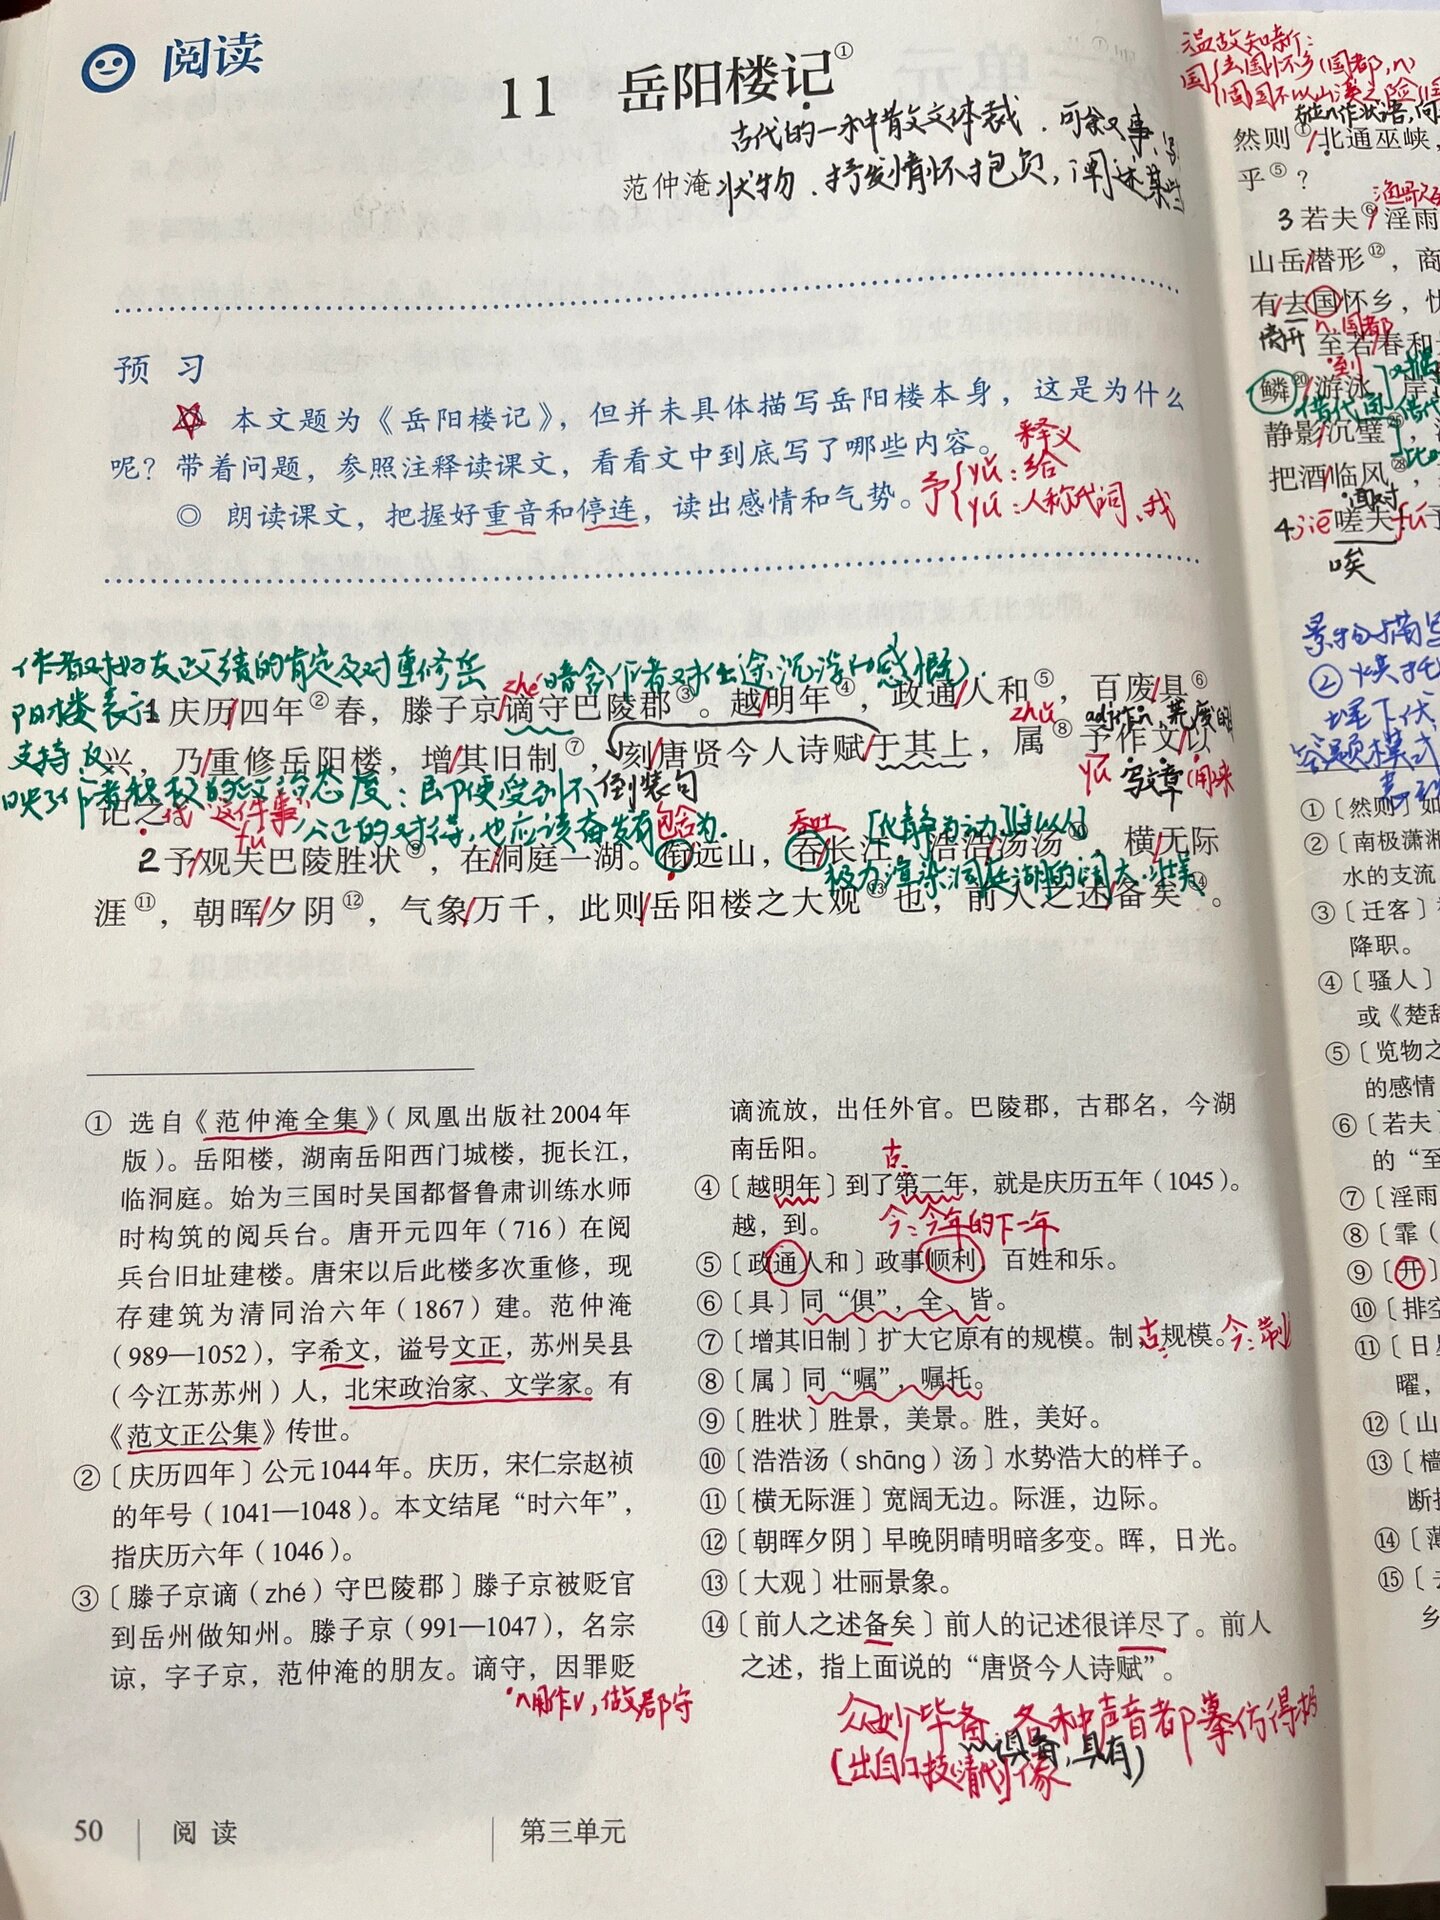 阅读
11 岳阳楼记①
古代的一种散文文体裁，可叙事、写
范仲淹
状物，抒发情怀抱负，阐述某些
预 习
本文题为《岳阳楼记》，但并未具体描写岳阳楼本身，这是为什么
呢？带着问题，参照注释读课文，看看文中到底写了哪些内容。
释义
◎ 朗读课文，把握好重音和停连，读出感情和气势。
予 yǔ：给
yú：人称代词，我
作者对好友政绩的肯定及对重修岳
阳楼表示
支持
zhé 暗含作者对仕途沉浮的感慨
1 庆历/四年②春，滕子京/谪守巴陵郡③。越/明年④，政通/人和⑤，百废/具⑥
zhǔ adj作n，荒废的
兴，乃/重修岳阳楼，增/其旧制⑦，刻/唐贤今人诗赋/于其上，属⑧予作文/以
倒装句
yú 写文章 (用来
态度：即便受到不
公正的对待，也应该奋发有为.
记之。代 这件事
fú
包含
吞吐
[化静为动]
2 予/观夫巴陵胜状⑨，在/洞庭一湖。衔远山，吞/长江，浩浩汤汤⑩，横/无际
极力渲染洞庭湖的阔大.壮美
涯⑪，朝晖/夕阴⑫，气象/万千，此则/岳阳楼之大观⑬也，前人之述/备矣⑭。
① 选自《范仲淹全集》（凤凰出版社2004年
版）。岳阳楼，湖南岳阳西门城楼，扼长江，
临洞庭。始为三国时吴国都督鲁肃训练水师
时构筑的阅兵台。唐开元四年（716）在阅
兵台旧址建楼。唐宋以后此楼多次重修，现
存建筑为清同治六年（1867）建。范仲淹
（989—1052），字希文，谥号文正，苏州吴县
（今江苏苏州）人，北宋政治家、文学家。有
《范文正公集》传世。
②〔庆历四年〕公元1044年。庆历，宋仁宗赵祯
的年号（1041—1048）。本文结尾“时六年”，
指庆历六年（1046）。
③〔滕子京谪（zhé）守巴陵郡〕滕子京被贬官
到岳州做知州。滕子京（991—1047），名宗
谅，字子京，范仲淹的朋友。谪守，因罪贬
n用作v，做郡守
谪流放，出任外官。巴陵郡，古郡名，今湖
南岳阳。
古
④〔越明年〕到了第二年，就是庆历五年（1045）。
越，到。
今：今年的下一年
⑤〔政通人和〕政事顺利，百姓和乐。
⑥〔具〕同“俱”，全、皆。
⑦〔增其旧制〕扩大它原有的规模。制，规模。
古 今：制
⑧〔属〕同“嘱”，嘱托。
⑨〔胜状〕胜景，美景。胜，美好。
⑩〔浩浩汤（shāng）汤〕水势浩大的样子。
⑪〔横无际涯〕宽阔无边。际涯，边际。
⑫〔朝晖夕阴〕早晚阴晴明暗多变。晖，日光。
⑬〔大观〕壮丽景象。
⑭〔前人之述备矣〕前人的记述很详尽了。前人
之述，指上面说的“唐贤今人诗赋”。
众妙毕备 各种声音都摹仿得
[出自口技(清代)] 像
(具备，具有)
50 阅 读 第三单元
温故知新：
国 去国怀乡(国都，n)
固国不以山溪之险
然则①/北通巫峡，
乎⑤？
3 若夫⑥/淫雨
山岳/潜形⑫，商
有/去国怀乡，忧
离开
n，国都
至若/春和
到
鳞⑳/游泳，岸
静影/沉璧，
把酒/临风㉘，
面对
4 jiē 嗟夫 fú 予
唉
景物描写
答题模式
①〔然则〕如
②〔南极潇湘
水的支流
③〔迁客〕
降职。
④〔骚人〕
或《楚辞
⑤〔览物之
的感情
⑥〔若夫〕
的“至
⑦〔淫雨
⑧〔霏（
⑨〔开〕
⑩〔排空
⑪〔日星
曜，
⑫〔山
⑬〔樯
断折
⑭〔薄
⑮〔去
乡